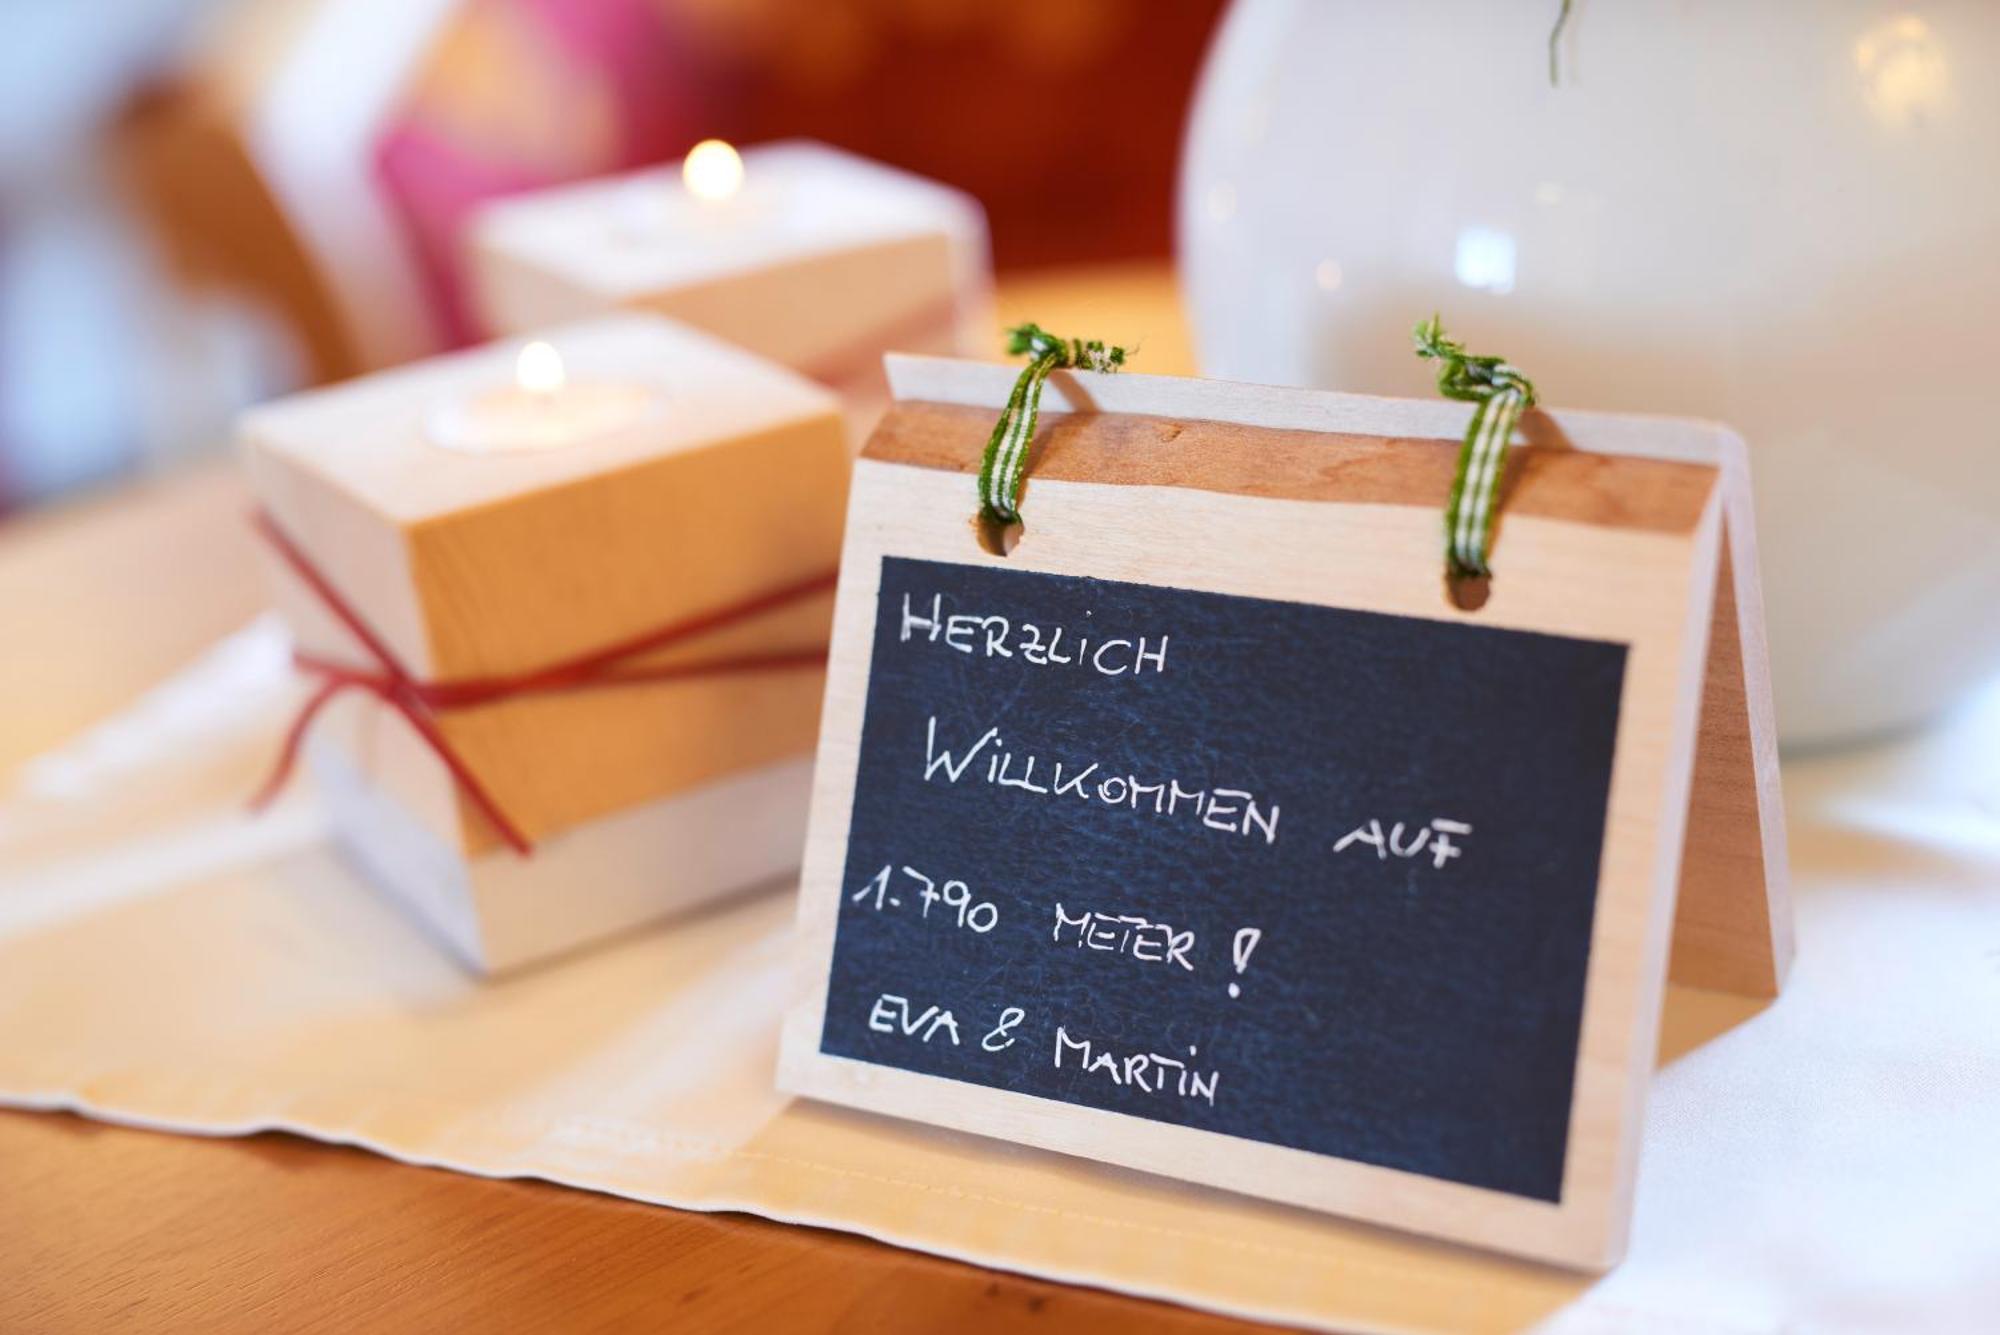 HERZLICH
WILLKOMMEN AUF
1.790 METER!
EVA & MARTIN